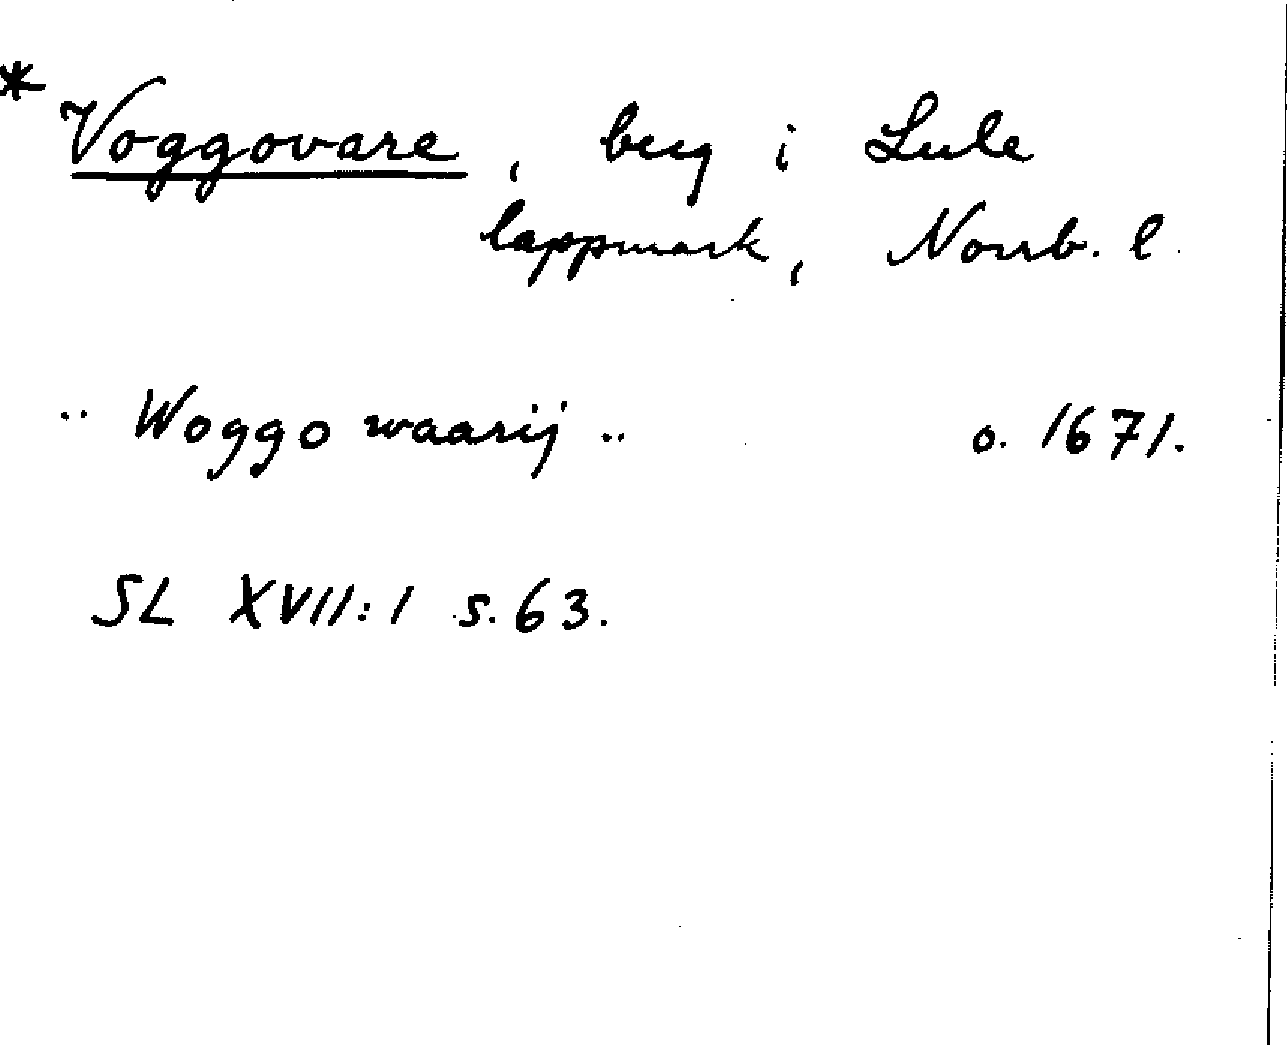 * Voggovare, berg i Lule
lappmark, Norrb. l.
.. Woggo waarij ..    o. 1671.
SL XVII:1 s. 63.